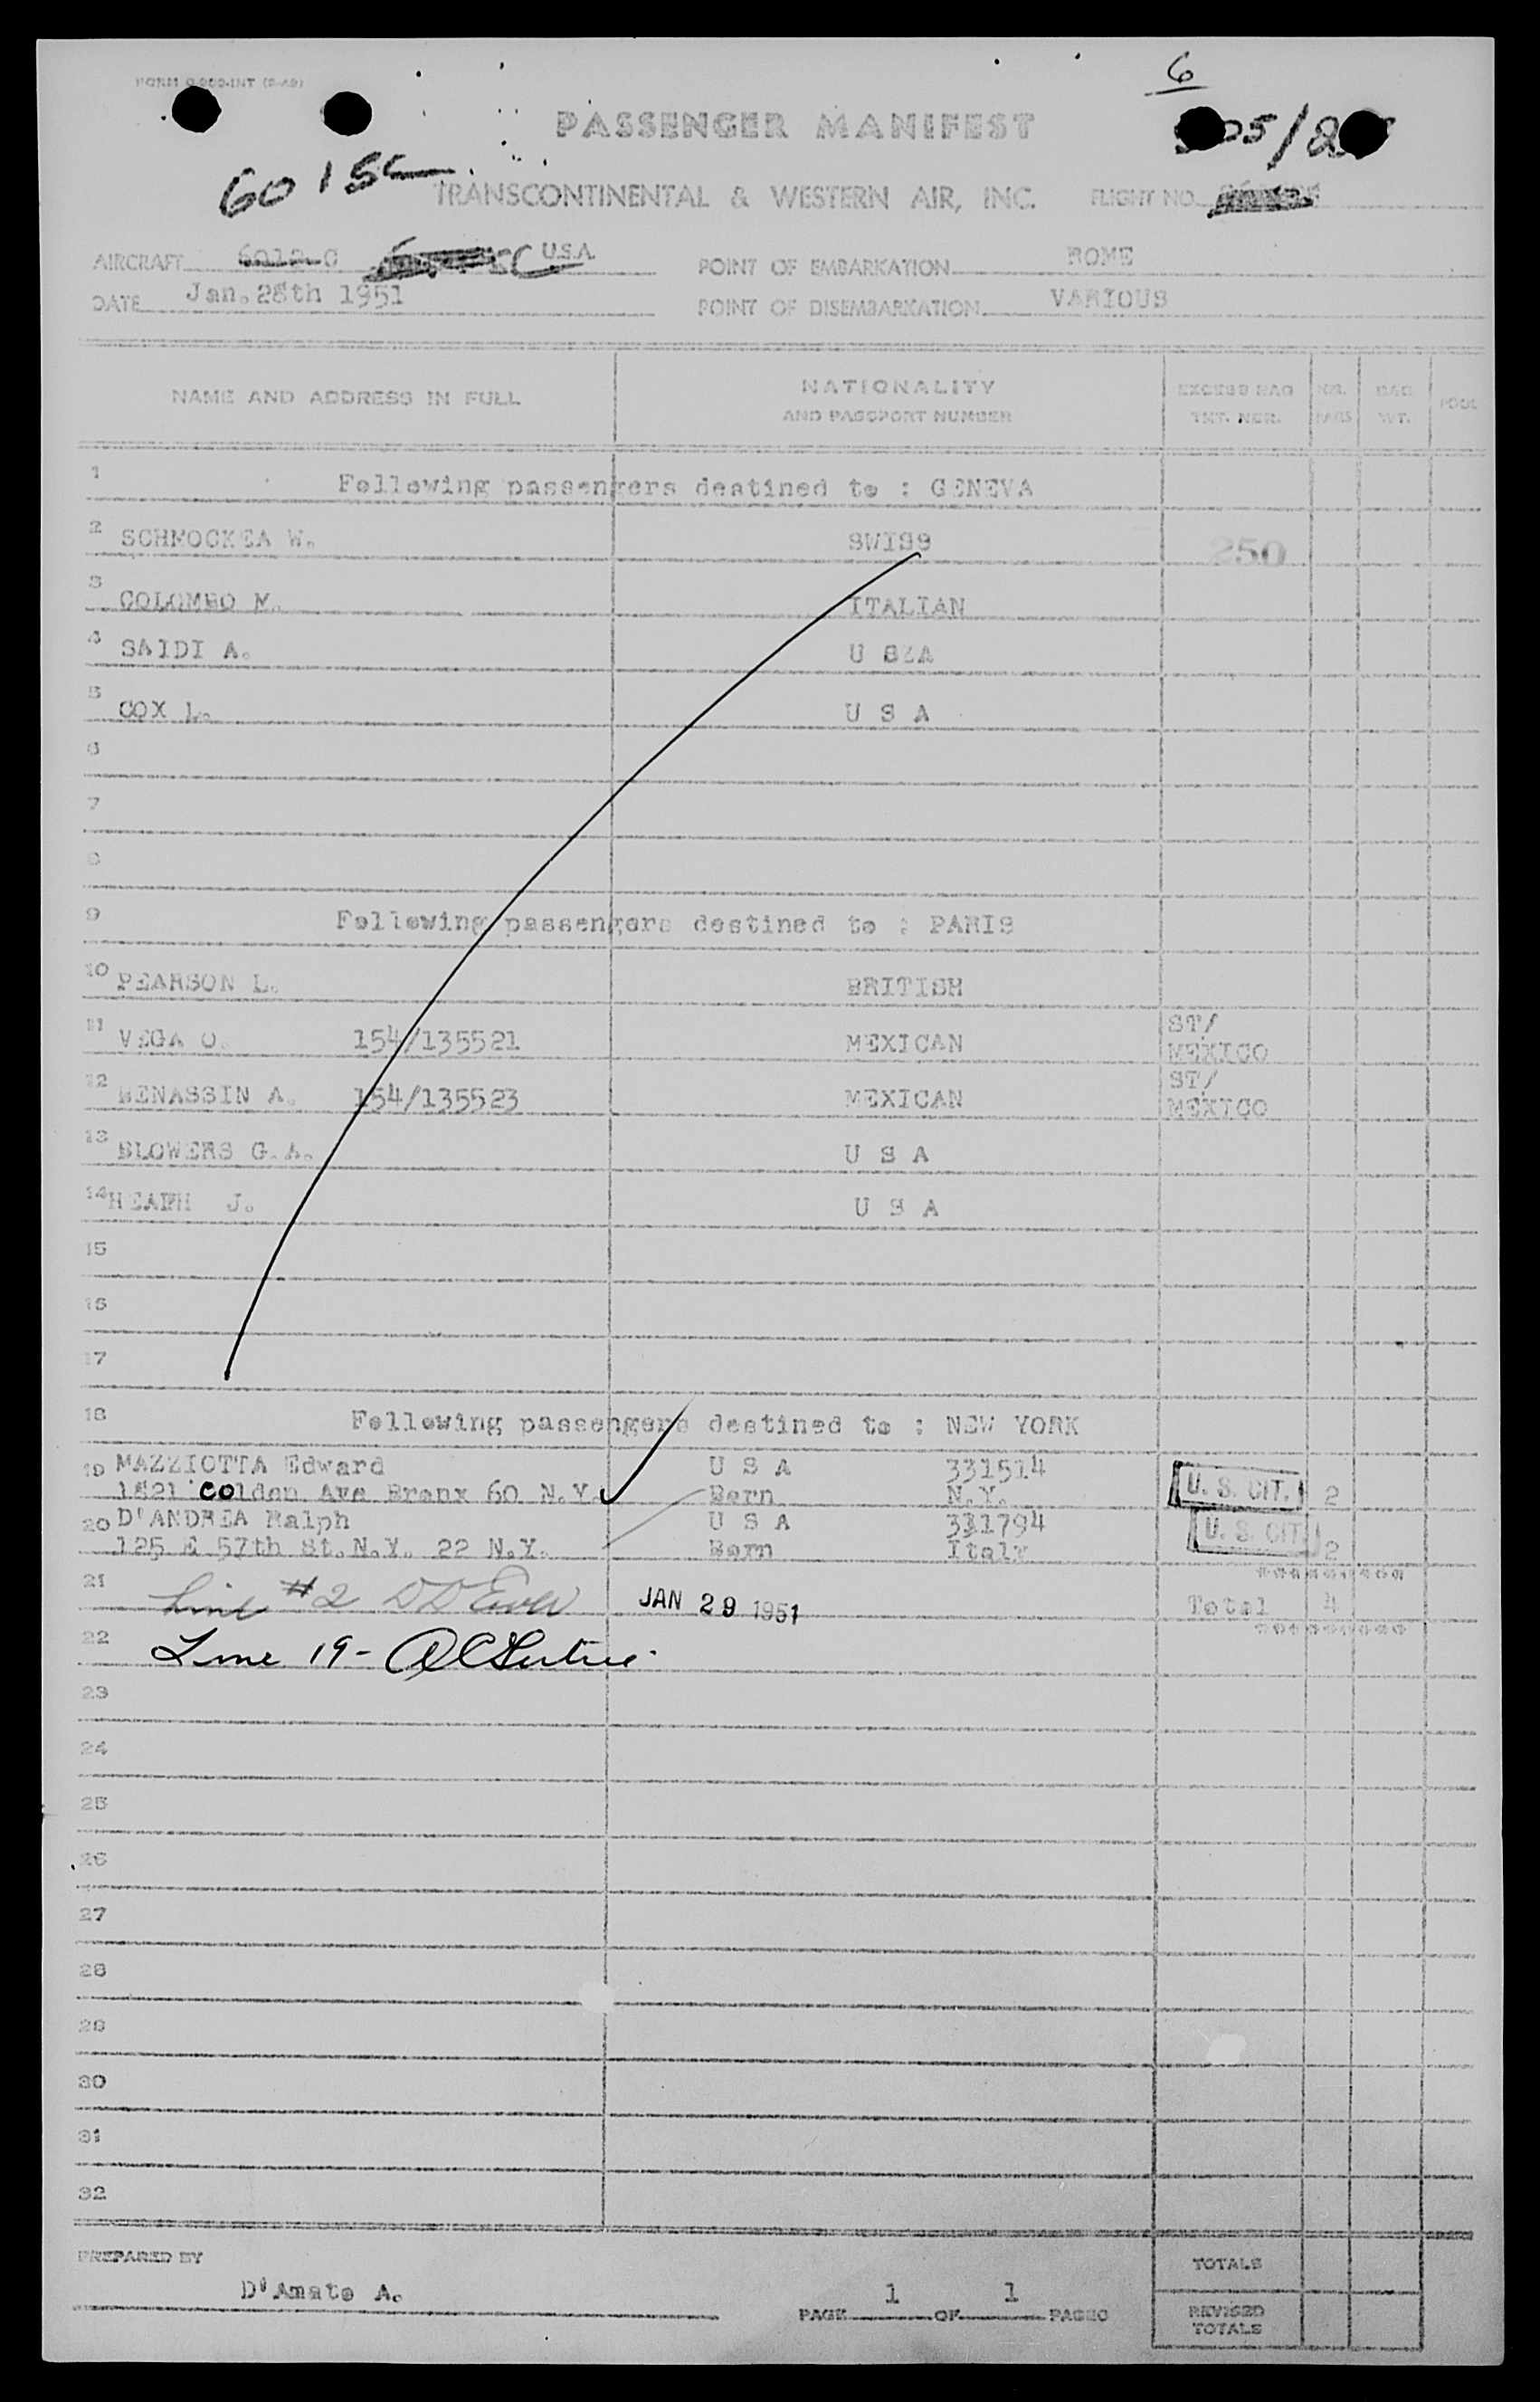 6
PASSENGER MANIFEST
6015C
TRANSCONTINENTAL & WESTERN AIR, INC. FLIGHT NO.
AIRCRAFT 6012-C U.S.A. POINT OF EMBARKATION ROME
DATE Jan.28th 1951 POINT OF DISEMBARKATION VARIOUS
NAME AND ADDRESS IN FULL NATIONALITY AND PASSPORT NUMBER EXCESS BAG TKT. NBR. BAG WT. POOL
1 Following passengers destined to : GENEVA
2 SCHMOCKEA W. SWISS 250
3 COLOMBO M. ITALIAN
4 SAIDI A. U S A
5 COX L. U S A
6
7
8
9 Following passengers destined to : PARIS
10 PEARSON L. BRITISH
11 VEGA O. 154/135521 MEXICAN ST/ MEXICO
12 BENASSIN A. 154/135523 MEXICAN ST/ MEXICO
13 BLOWERS G.A. U S A
14 J. U S A
15
16
17
18 Following passengers destined to : NEW YORK
19 MAZZIOTTA Edward U S A 331514
1821 Colden Ave Bronx 60 N.Y. Born N.Y. U. S. CIT. 2
20 D'ANDREA Ralph U S A 331794
125 E 57th St.N.Y. 22 N.Y. Born Italy U. S. CIT. 2
21 Line #2 JAN 29 1951 Total 4
22 Line 19-
23
24
25
26
27
28
29
30
31
32
PREPARED BY TOTALS
D'Amato A. PAGE 1 OF 1 PAGES
REVISED TOTALS